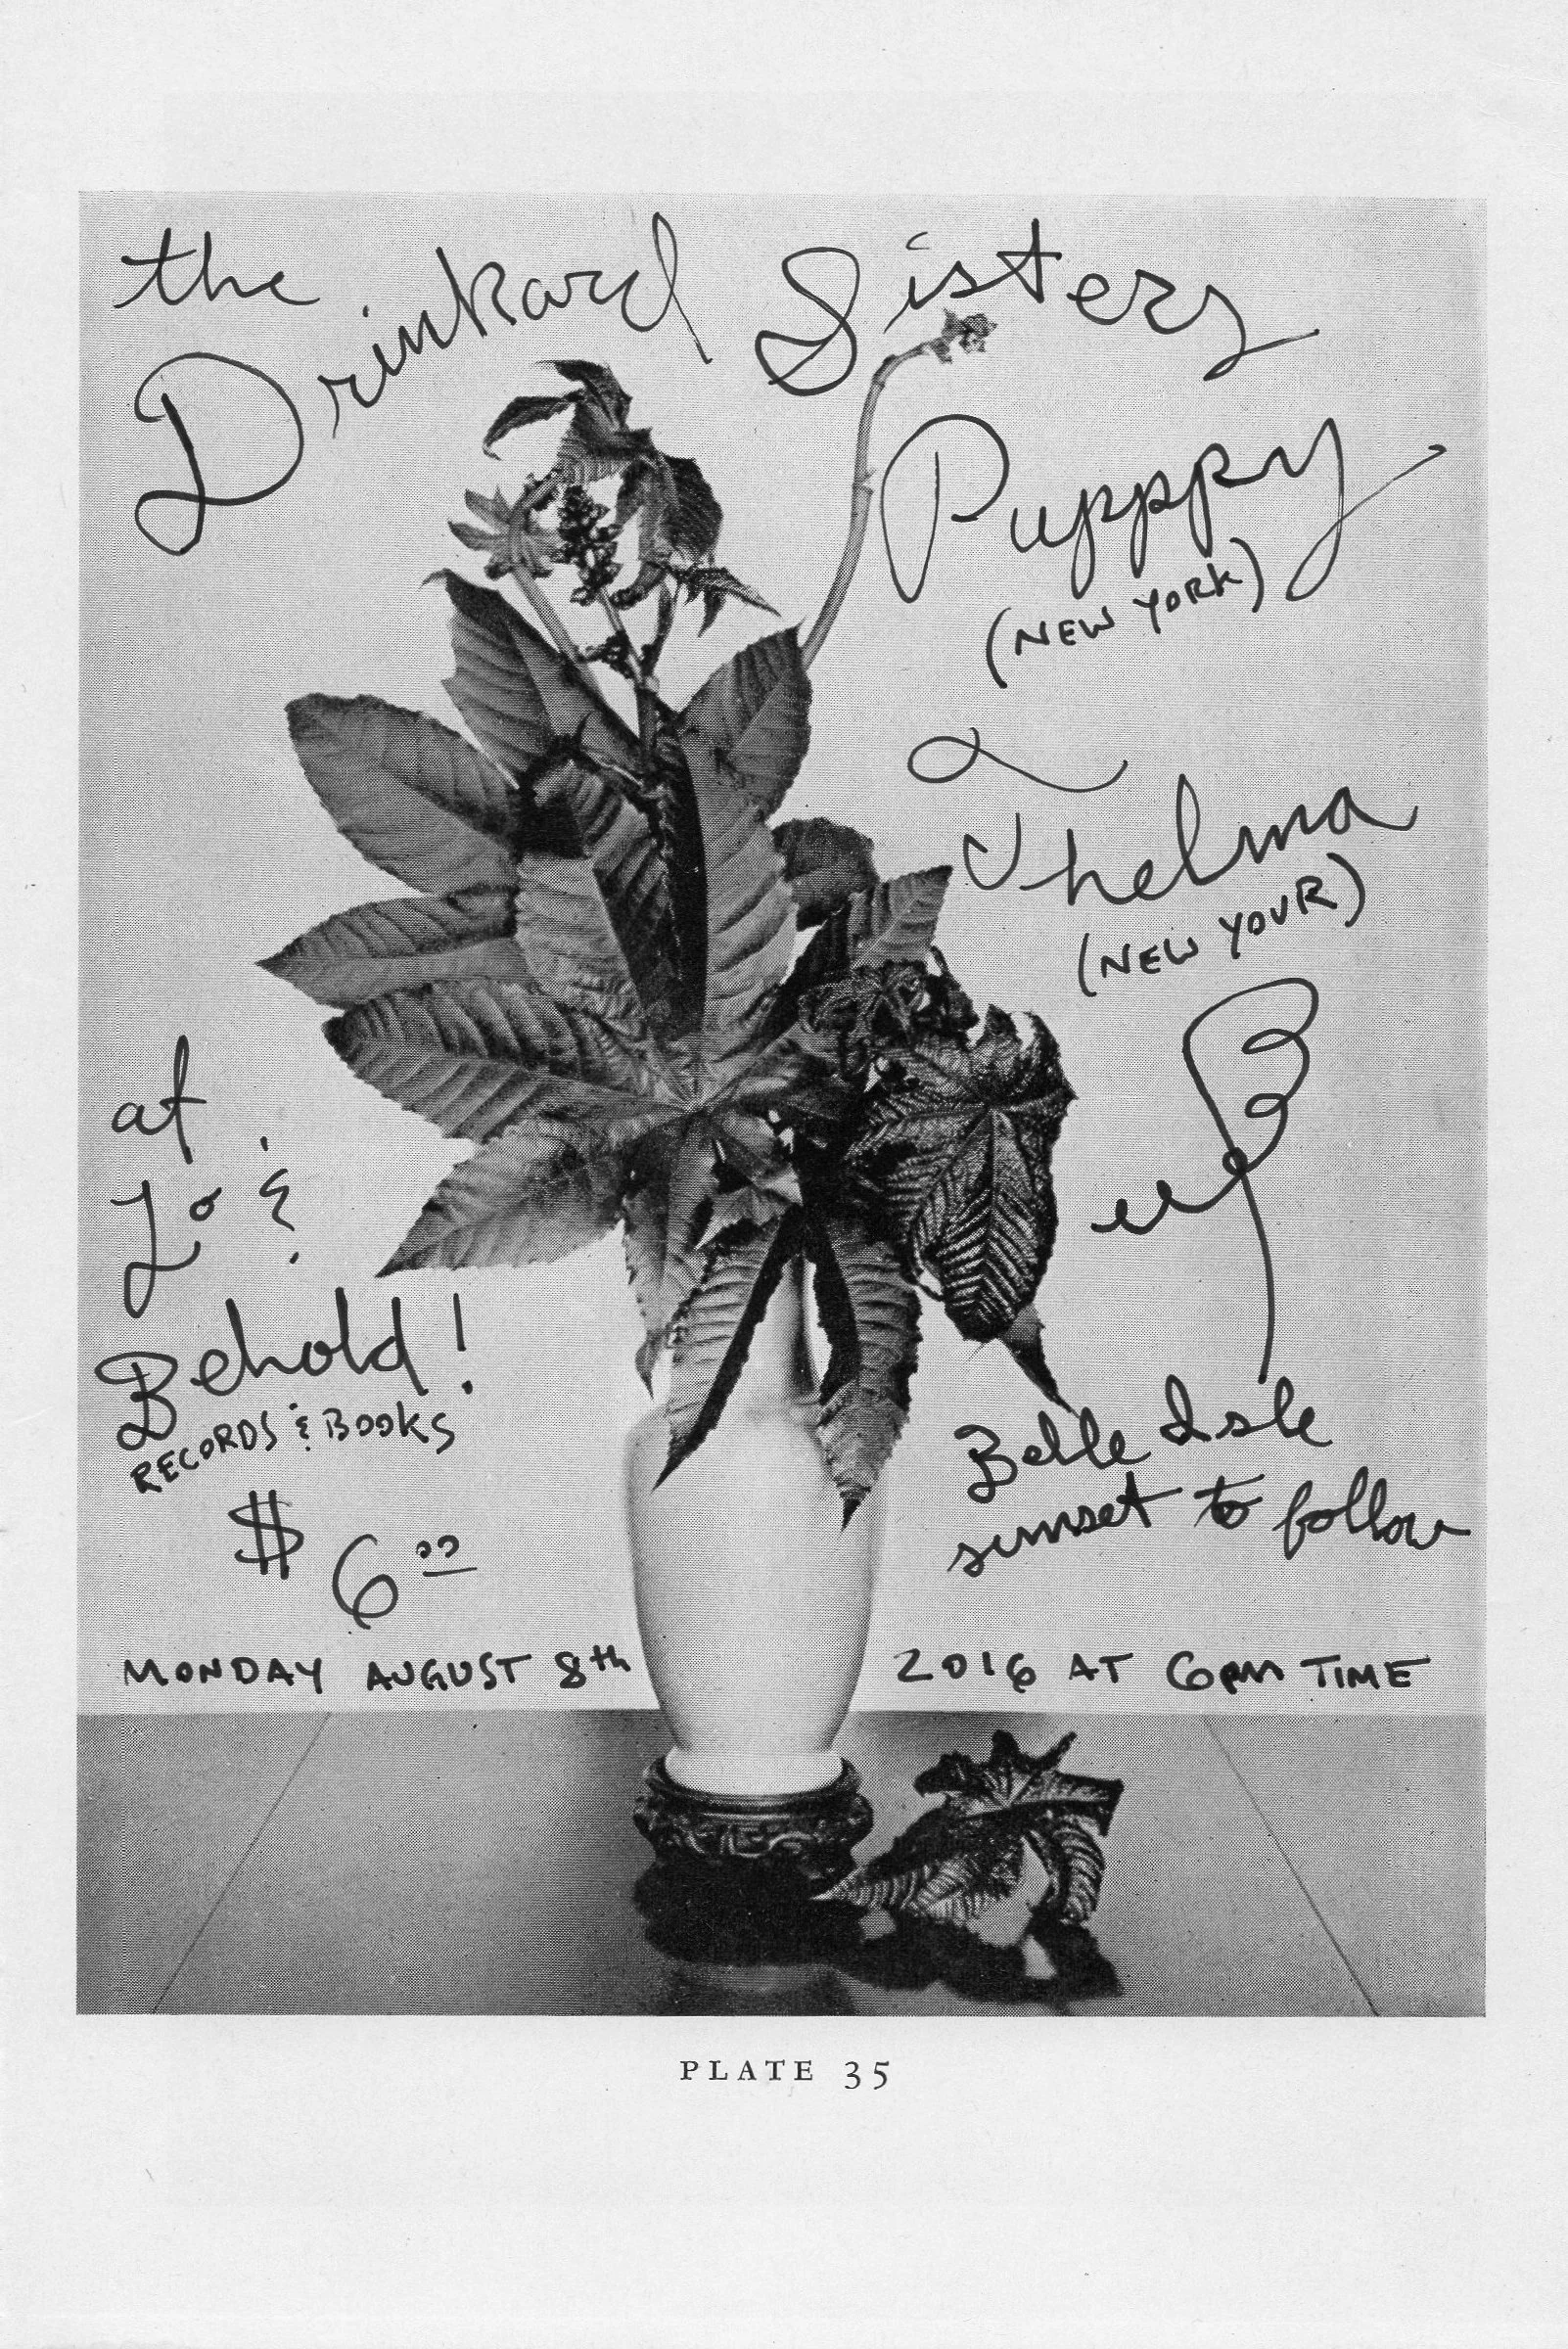 the
Drinkard Sisters
Puppy
(NEW YORK)
Thelma
(NEW YOUR)
at
Lo &
Behold!
RECORDS & BOOKS
$ 6.00
Belle Isle
sunset to follow
MONDAY AUGUST 8th 2016 AT 6pm TIME
PLATE 35